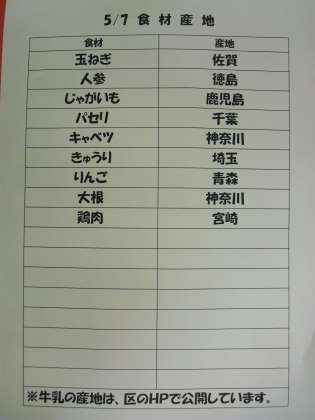 5/7 食材産地
食材 産地
玉ねぎ 佐賀
人参 徳島
じゃがいも 鹿児島
パセリ 千葉
キャベツ 神奈川
きゅうり 埼玉
りんご 青森
大根 神奈川
鶏肉 宮崎
※牛乳の産地は、区のHPで公開しています。